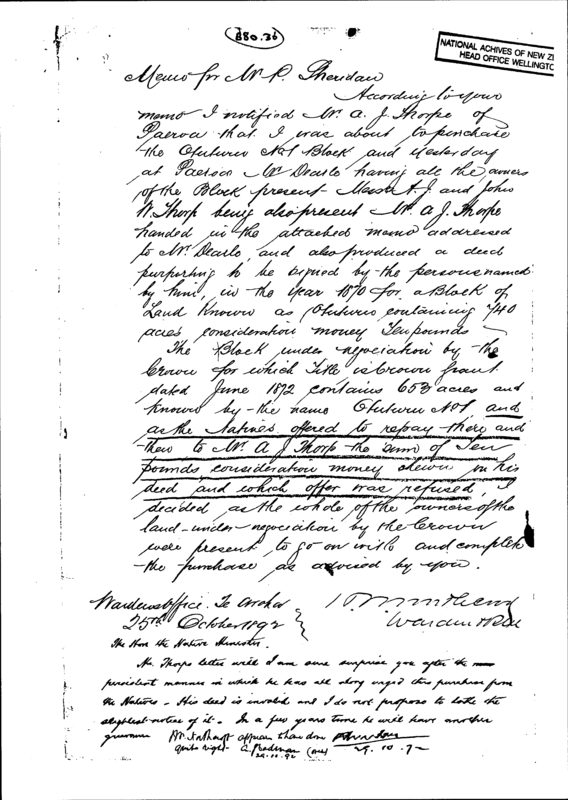 880.36
NATIONAL ACHIVES OF NEW ZE
HEAD OFFICE WELLINGTO
Memo for Mr. P. Sheridan
According to your
memo I notified Mr. A. J. Thorpe of
Paeroa that I was about to purchase
the Otuturu No1 Block and yesterday
at Paeroa Mr Dearle having all the owners
of the Block present Messrs A. J. and John
W. Thorp being also present Mr. A J. Thorpe
handed in the attached memo addressed
to Mr. Dearle, and also produced a deed
purporting to be signed by the persons named
by him, in the year 1870 for a Block of
Land known as Otuturu containing 740
acres consideration money Ten pounds
The Block under negociation by the
Crown for which Title is Crown grant
dated June 1872 contains 653 acres and
known by the name Otuturu No1, and
as the Natives offered to repay there and
then to Mr. A J Thorp the sum of Ten
pounds consideration money shewn in his
deed and which offer was refused, I
decided as the whole of the owners of the
land under negociation by the Crown
were present to go on with and complete
the purchase as advised by you.
Wardens Office. Te Aroha
25th October 1892
Warden
The Hon the Native Minister.
Mr. Thorps letter will I am sure surprise you after the
persistent manner in which he has all along urged this purchase from
the Natives - His deed is invalid and I do not propose to take the
slightest notice of it. In a few years time he will have another
grievance
29.10.92
quite right
29.10.92